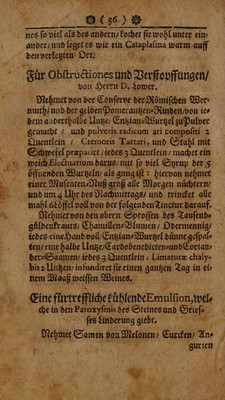 ( 56 )
nes so viel als des andern / kochet sie wohl unter ein-
ander / und leget es wie ein Cataplasma warm auff
den verletzten Ort.
Für Obstructiones und Verstopffungen /
von Herrn D. Lower.
Nehmet von der Conserve der Römischen Wer-
muth / und der gelben Pomerantzen-Rinden / von ie-
dem anderthalbe Untze / Entzian-Wurtzel zu Pulver
gemacht / und pulveris radicum ari compositi 2
Quentlein / Cremoris Tartari, und Stahl mit
Schwefel præpariret / iedes 3 Quentlein / machet ein
weich Electuarium daraus, mit so viel Syrup der 5
öffnenden Wurtzeln / als gnug ist: hiervon nehmet
einer Muscaten-Nuß groß alle Morgen nüchtern /
und um 4 Uhr des Nachmittags / und trincket alle
mahl 6 Löffel voll von der folgenden Tinctur darauf.
Nehmet von den obern Sprossen des Tausend-
güldenkrauts / Chamillen-Blumen / Odermennig /
iedes eine Hand voll / Entzian-Wurtzel dünne gespal-
ten / eine halbe Untze / Cardobenedicten- und Corian-
der-Saamen / iedes 3 Quentlein / Limaturæ chaly-
bis 2 Untzen / infundiret sie einen gantzen Tag in ei-
nem Maaß weissen Weines.
Eine fürtreffliche kühlende Emulsion, wel-
che in den Paroxysmis des Steines und Grie-
ses Linderung giebt.
Nehmet Samen von Melonen / Curcken / An-
gurien